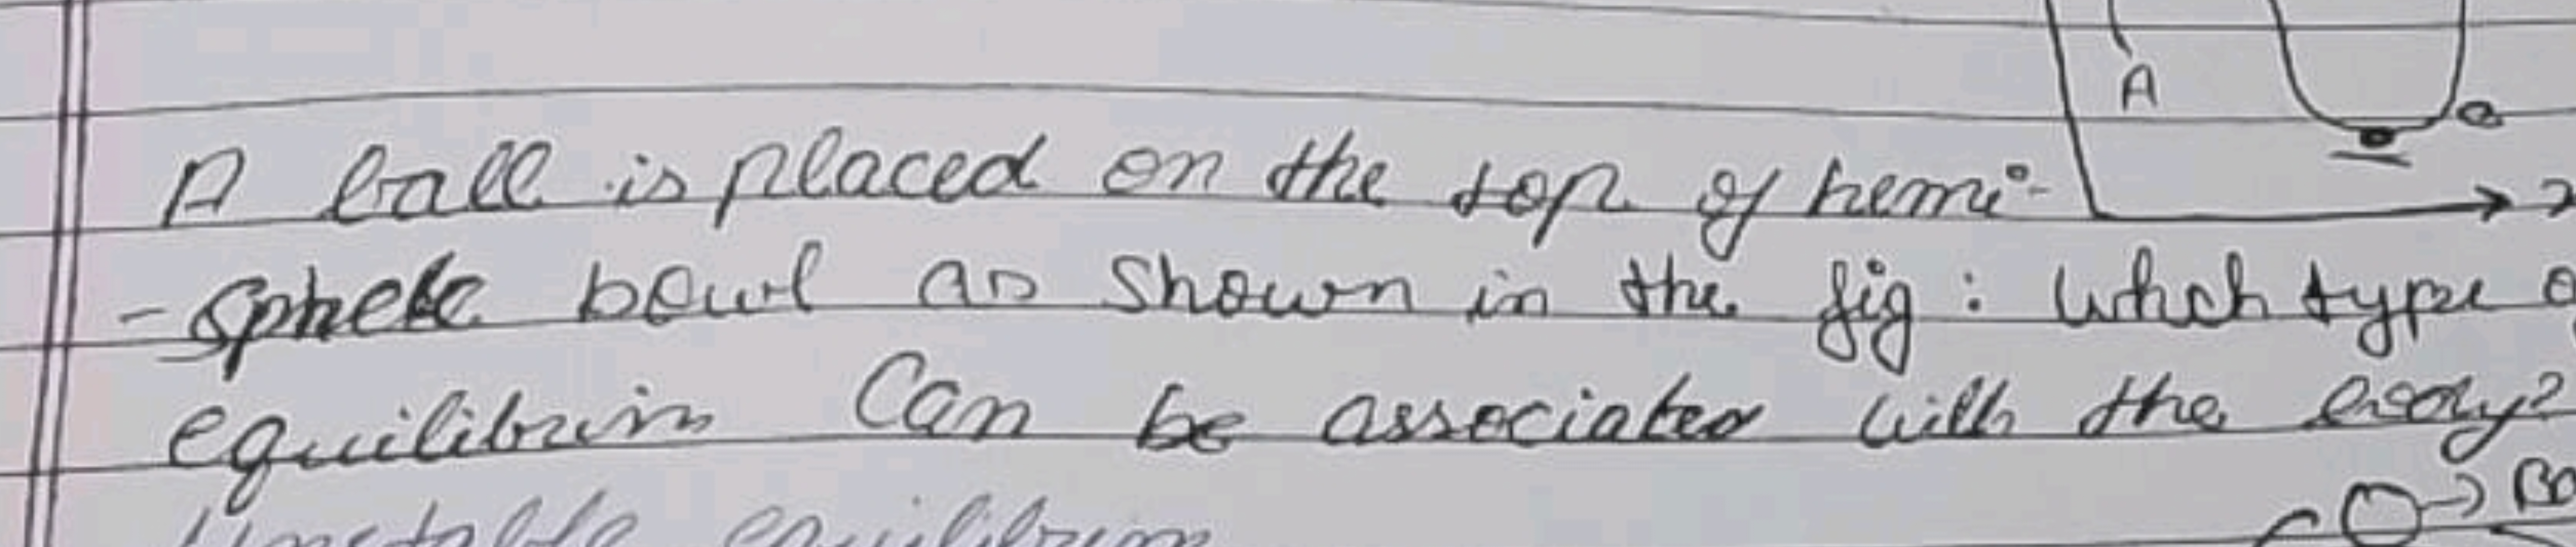 A
A ball is placed on the top of hemi-
-sphere bowl as shown in the fig: Which type
equilibrium Can be associated with the body?
Unstable equilibrium